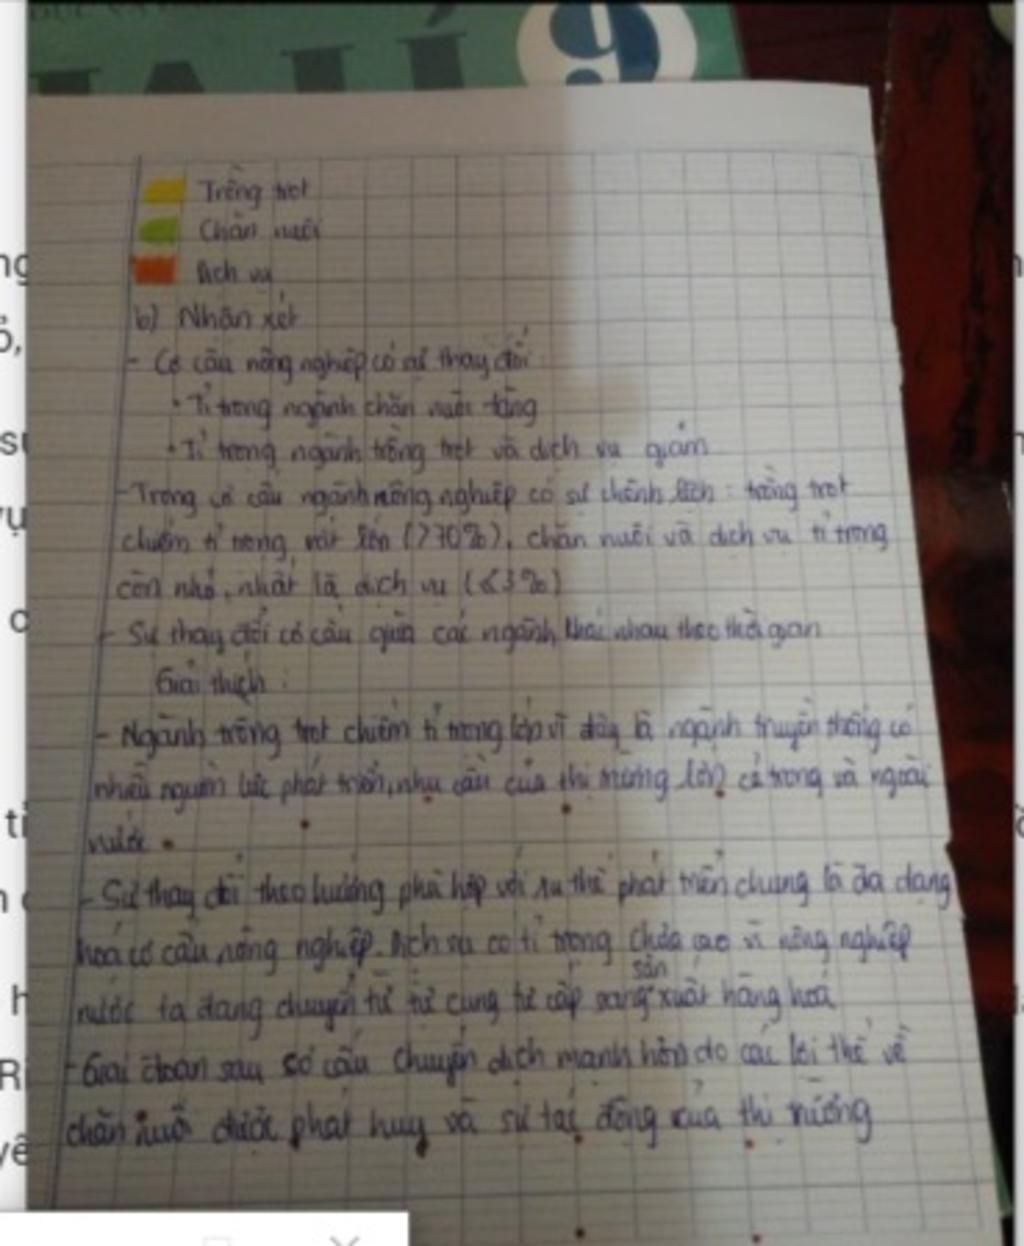 ĐỊA LÍ 9
Trồng trọt
Chăn nuôi
Dịch vụ
b) Nhận xét
- Cơ cấu nông nghiệp có sự thay đổi
• Tỉ trọng ngành chăn nuôi tăng
• Tỉ trọng ngành trồng trọt và dịch vụ giảm
- Trong cơ cấu ngành nông nghiệp có sự chênh lệch : trồng trọt
chiếm tỉ trọng rất lớn (>70%), chăn nuôi và dịch vụ tỉ trọng
còn nhỏ, nhất là dịch vụ (≤3%)
- Sự thay đổi cơ cấu giữa các ngành khác nhau theo thời gian
Giải thích :
- Ngành trồng trọt chiếm tỉ trọng lớn vì đây là ngành truyền thống có
nhiều nguồn lực phát triển, nhu cầu của thị trường lớn cả trong và ngoài
nước.
- Sự thay đổi theo hướng phù hợp với xu thế phát triển chung là đa dạng
hoá cơ cấu nông nghiệp. Dịch vụ có tỉ trọng chưa cao vì nông nghiệp
nước ta đang chuyển từ tự cung tự cấp sang sản xuất hàng hoá
- Giai đoạn sau cơ cấu chuyển dịch mạnh hơn do các lợi thế về
chăn nuôi được phát huy và sự tác động của thị trường